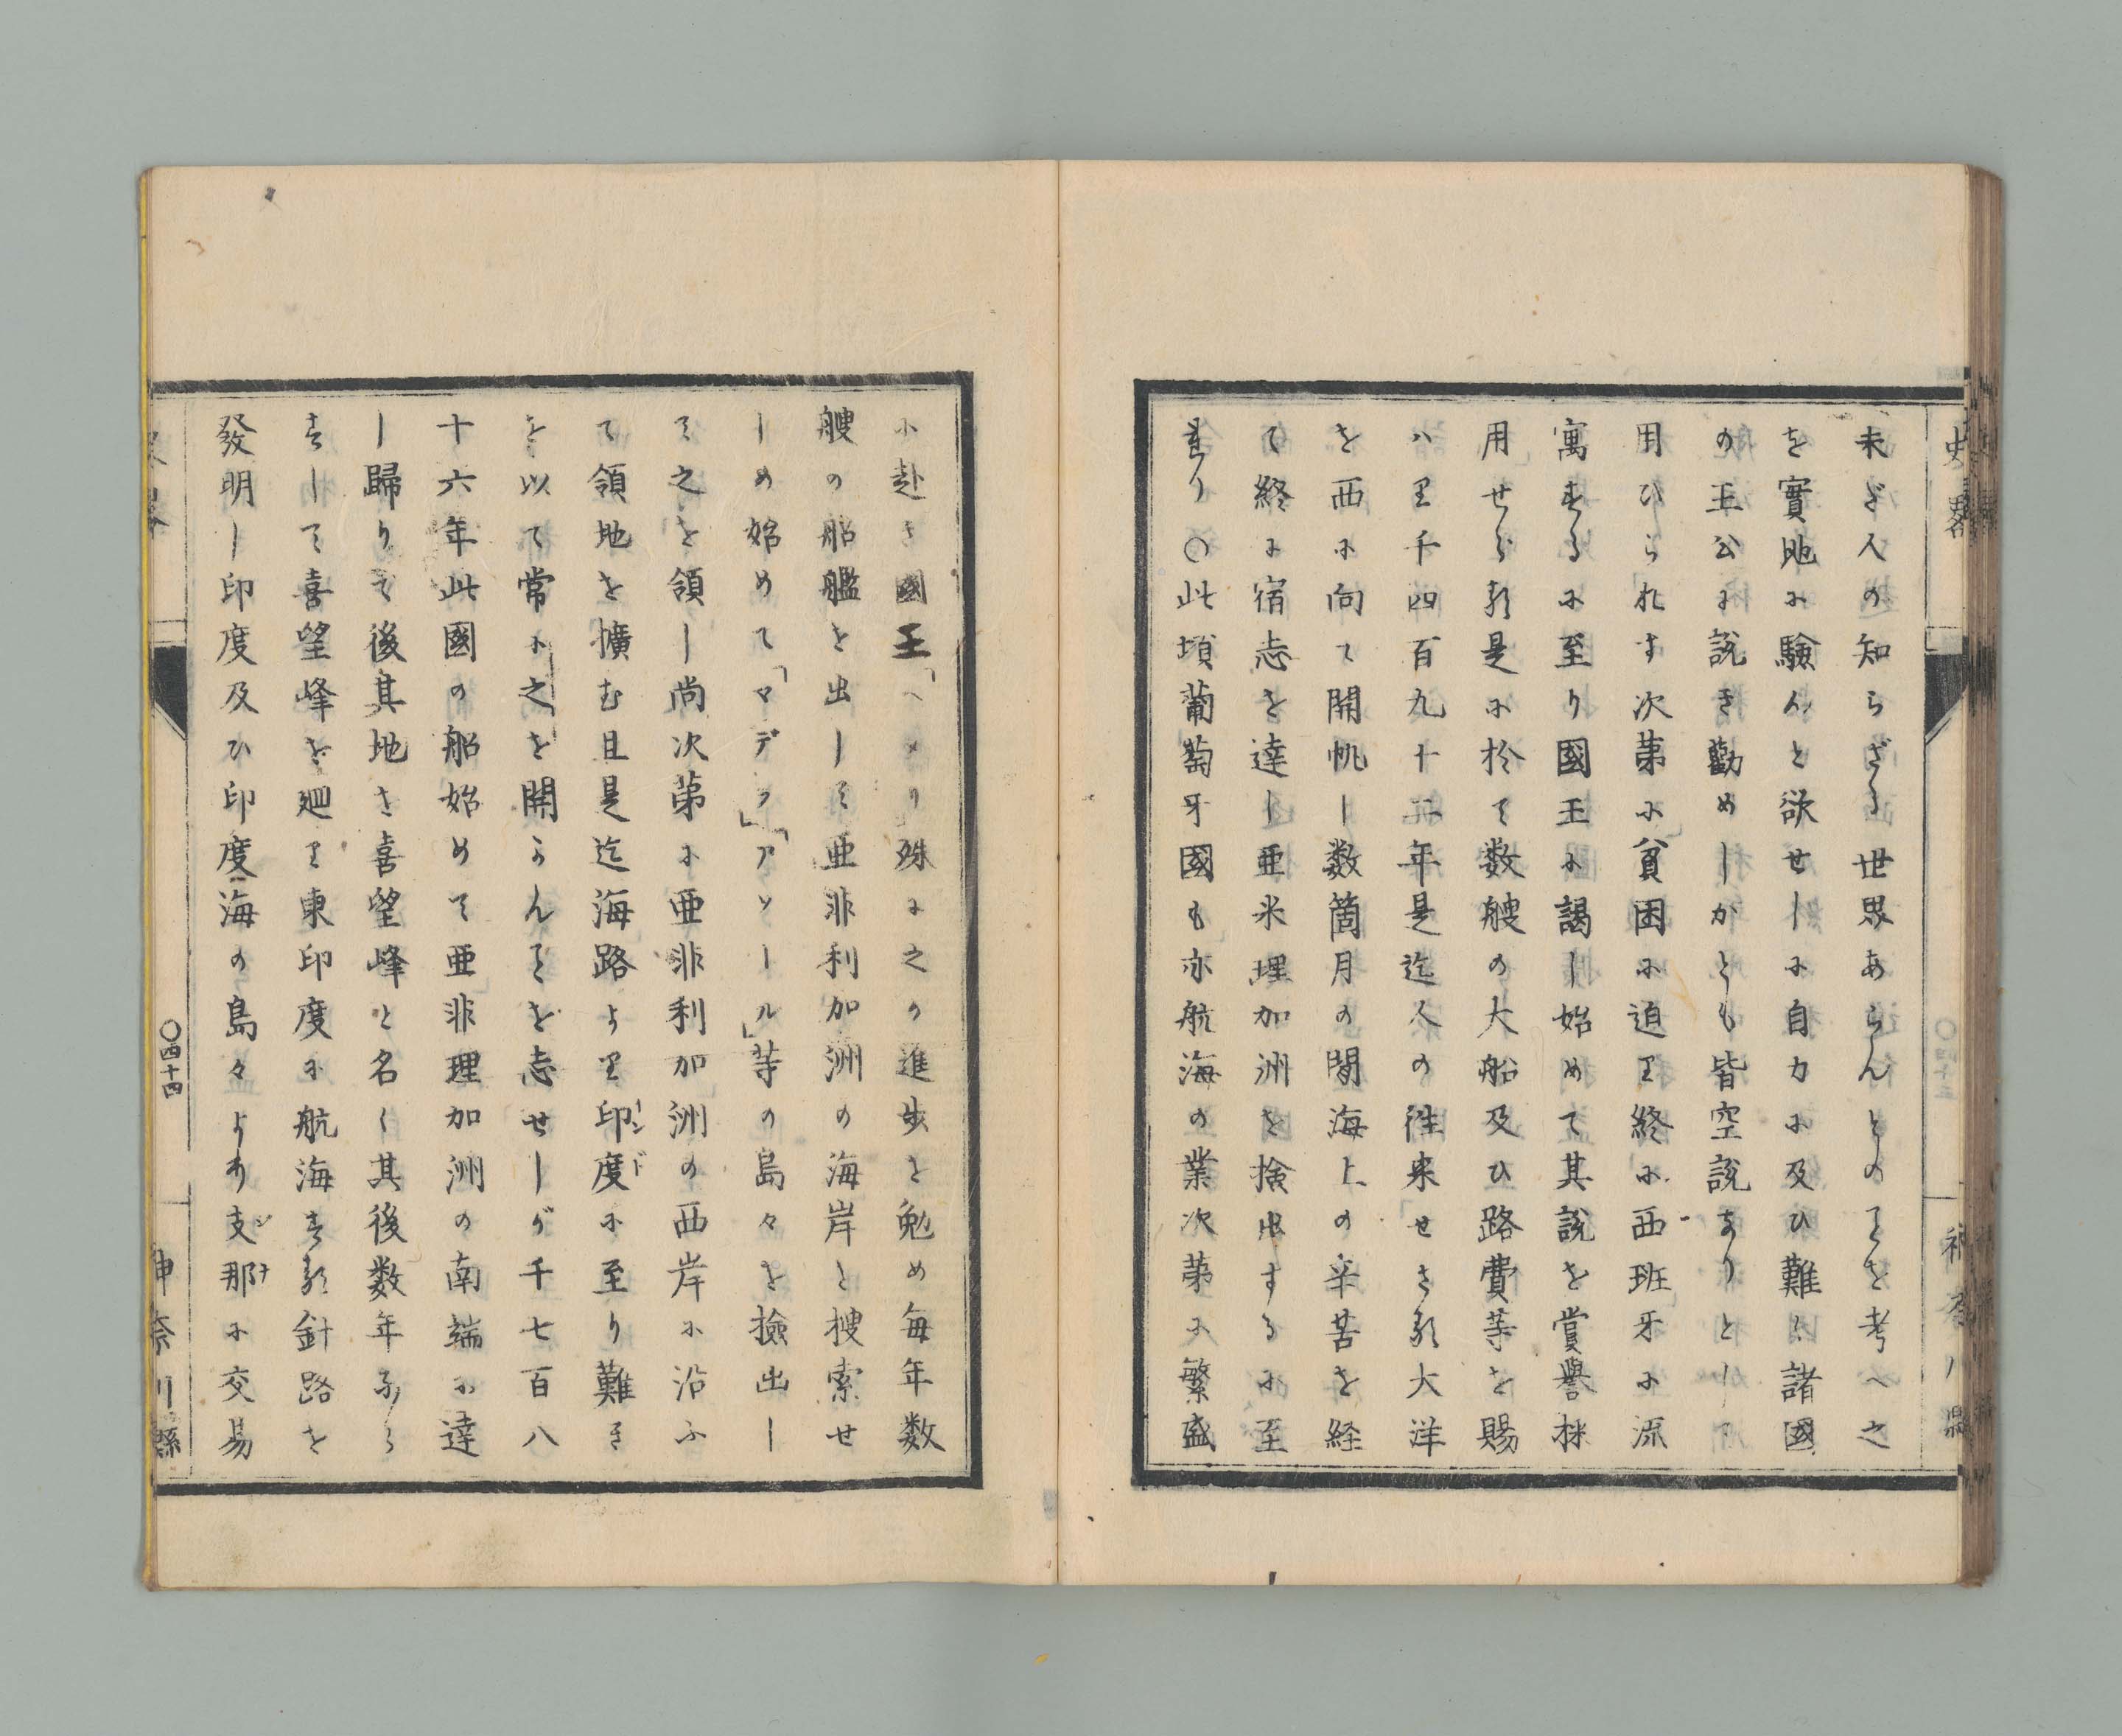 未ざ人の知らざる世界あらんとのヿを考へ之
を實地に驗んと欲せしに自力に及ひ難く諸國
の王公に說き勸めしかとも皆空說なりとして
用ひられす次第に貧困に迫り終に西班牙に流
寓するに至り國王に謁し始めて其說を賞譽採
用せらる是に於て数艘の大船及ひ路費等を賜
ハり千四百九十二年是迄人の徃来せさる大洋
を西に向て開帆し数箇月の間海上の辛苦を経
て終に宿志を達し亜米理加洲を撿出するに至
れり○此頃葡萄牙國も亦航海の業次第に繁盛
に赴き國王「ヘメリ」殊に之の進歩を勉め毎年数
艘の船艦を出して亜非利加洲の海岸を搜索せ
しめ始めて「マデラ」「アソール」等の島々を撿出し
て之を領し尚次第に亜非利加洲の西岸に沿ふ
て領地を擴む且是迄海路より印度に至り難き
を以て常に之を開らんヿを志せしが千七百八
十六年此國の船始めて亜非理加洲の南端に達
し歸りて後其地を喜望峰と名く其後数年なら
すして喜望峰を廻り東印度に航海する針路を
發明し印度及ひ印度海の島々より支那に交易
史畧
○四十四
神奈川縣